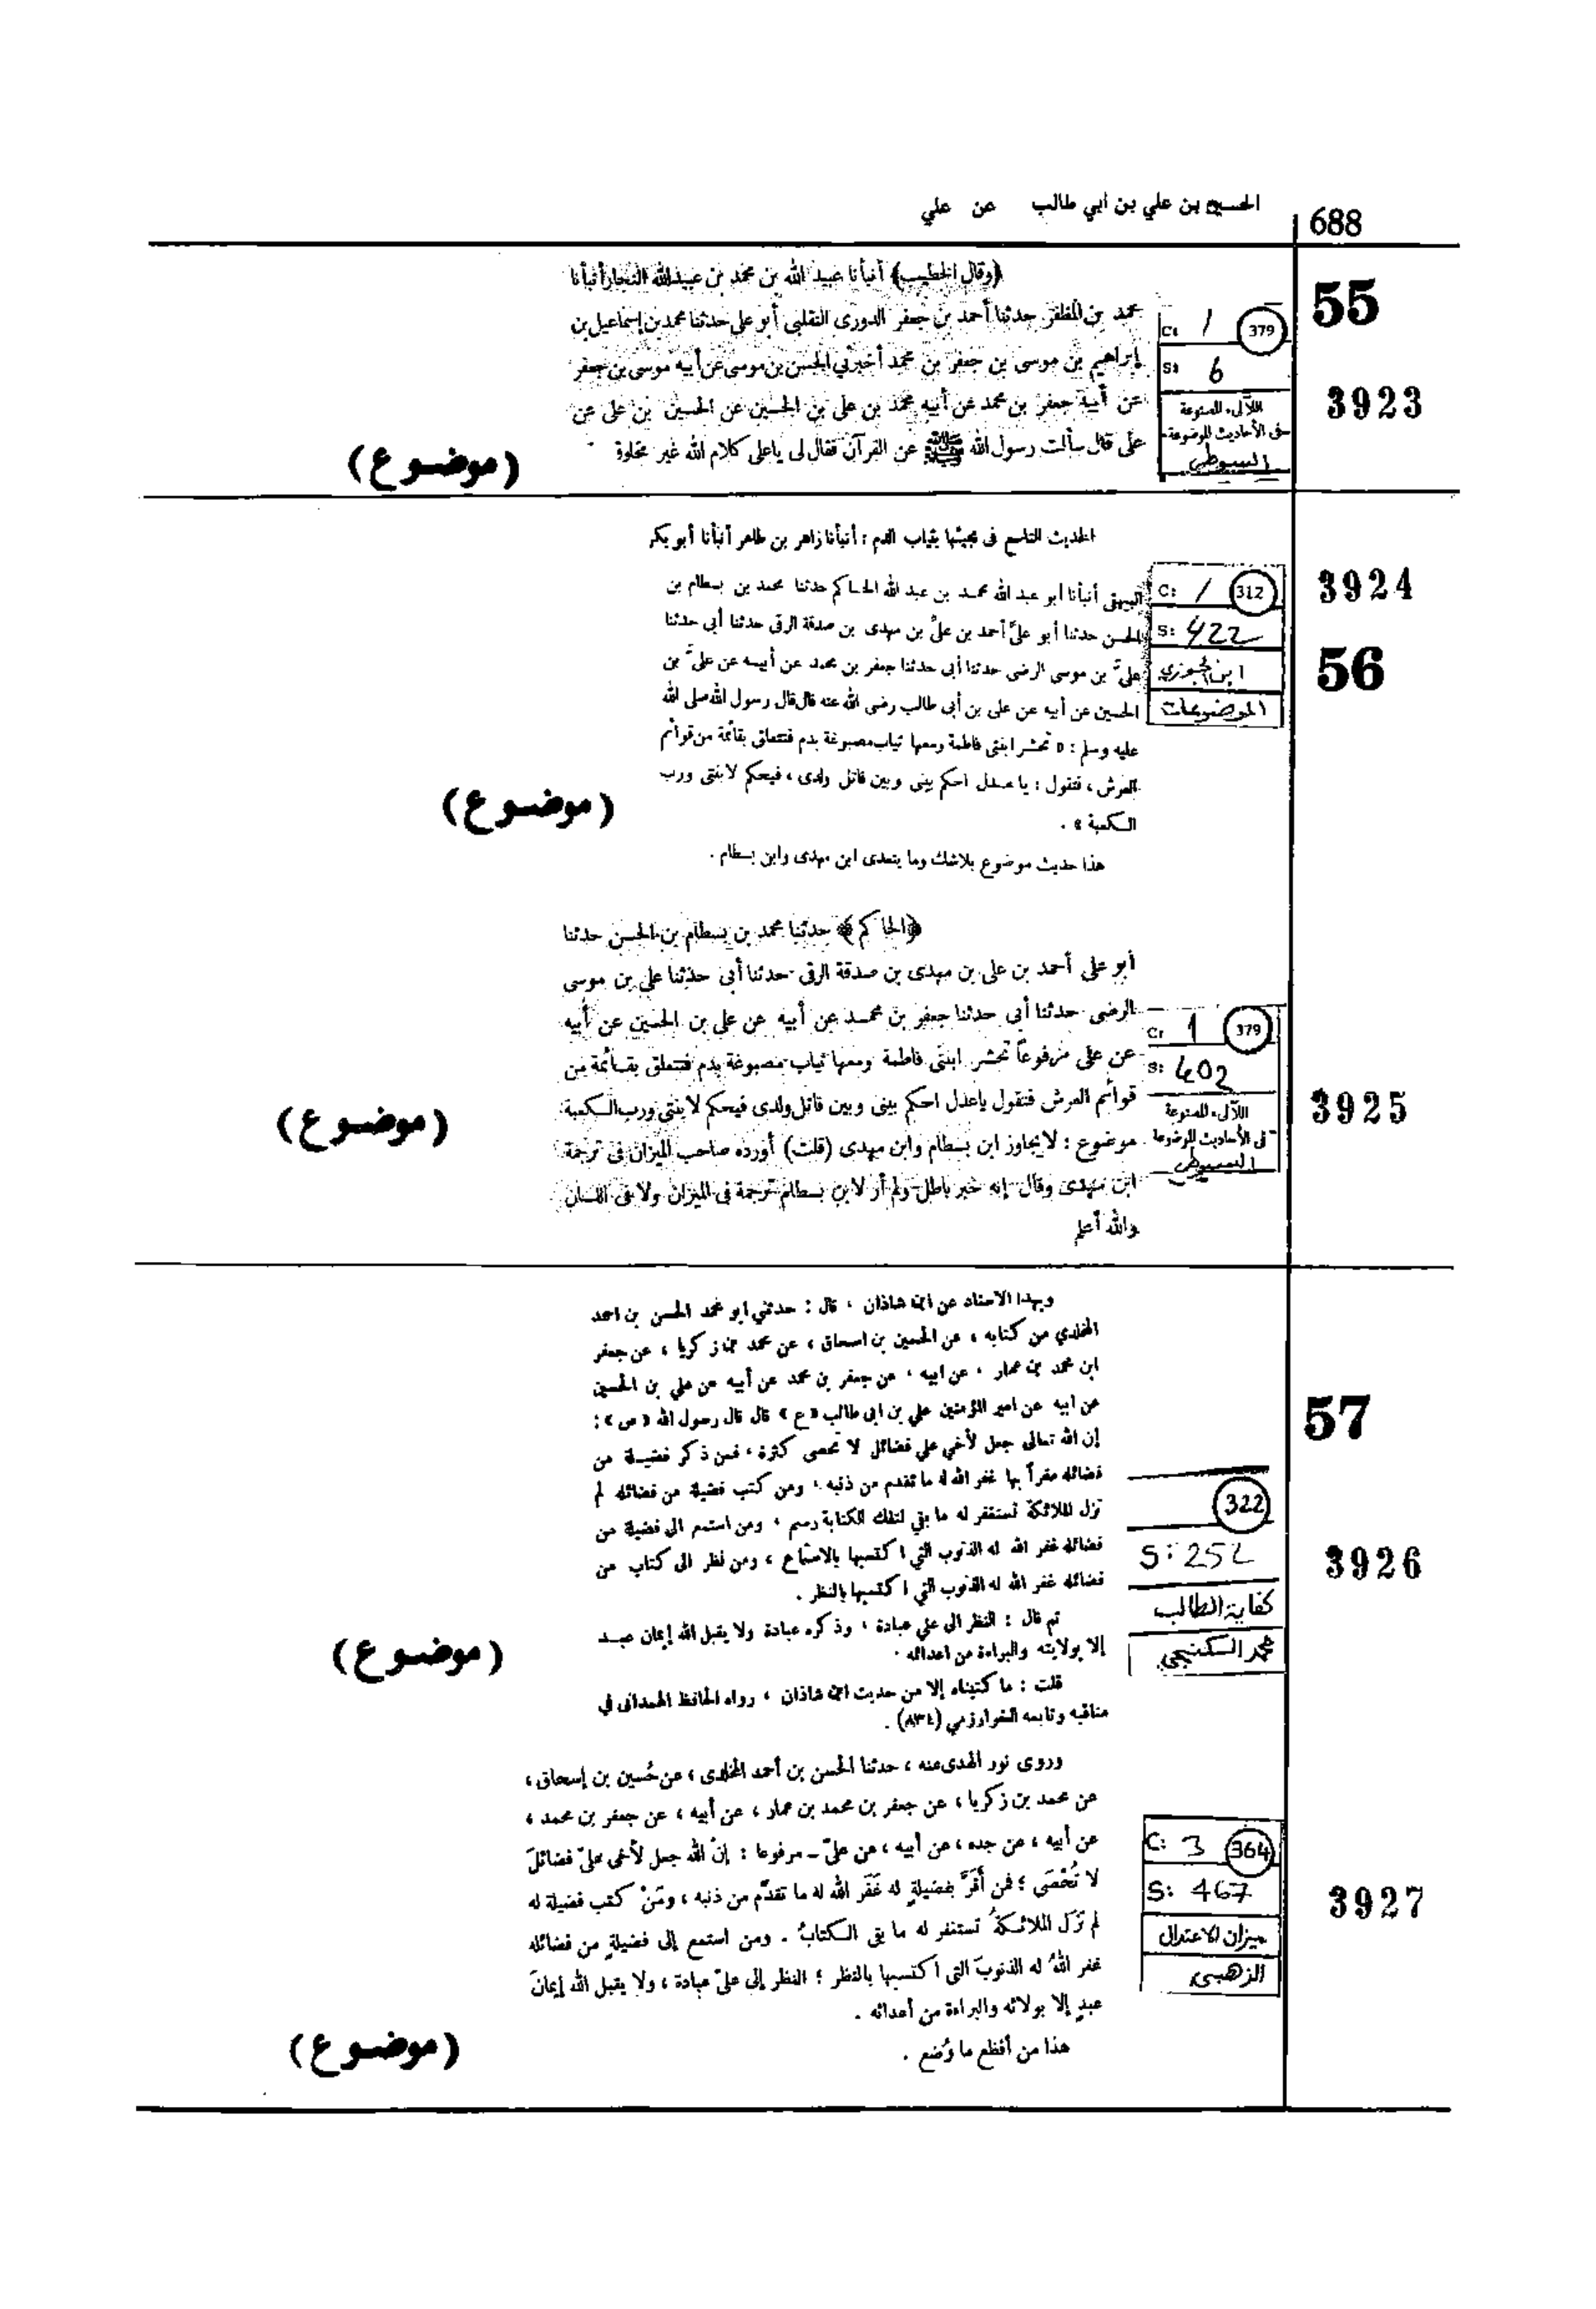 الحسين بن علي بن ابي طالب عن علي
688
(وقال الخطيب) أنبأنا عبيد الله بن محمد بن عبيدالله النجار أنبأنا
محمد بن المظفر حدثنا أحمد بن جعفر الدورى الثقلبى أبو على حدثنا محمد بن إسماعيل بن
إبراهيم بن موسى بن جعفر بن محمد أخبرني الحسن بن موسى عن أبيه موسى بن جعفر
عن أبيه جعفر بن محمد عن أبيه محمد بن على بن الحسين عن الحسين بن على عن
على قال سألت رسول الله ﷺ عن القرآن فقال لى ياعلى كلام الله غير مخلوق
(موضوع)
55
3923
C: 1 379
S: 6
اللآلىء المصنوعة
فى الأحاديث الموضوعة
السيوطي
الحديث التاسع فى مجيئها بثياب الدم : أنبأنا زاهر بن طاهر أنبأنا أبو بكر
البيهقى أنبأنا أبو عبد الله محمد بن عبد الله الحاكم حدثنا محمد بن بسطام بن
الحسن حدثنا أبو علىّ أحمد بن علىّ بن مهدى بن صدقة الرقى حدثنا أبى حدثنا
علىّ بن موسى الرضى حدثنا أبى حدثنا جعفر بن محمد عن أبيه عن علىّ بن
الحسين عن أبيه عن على بن أبى طالب رضى الله عنه قال قال رسول الله صلى الله
عليه وسلم : « تحشر ابنتى فاطمة ومعها ثياب مصبوغة بدم فتتعلق بقائمة من قوائم
العرش ، فتقول : يا عدل احكم بينى وبين قاتل ولدى ، فيحكم لابنتى ورب
الكعبة » .
هذا حديث موضوع بلاشك وما يتعدى ابن مهدى وابن بسطام .
(موضوع)
3924
56
C: 1 312
S: 422
ابن الجوزي
الموضوعات
(الحاكم) حدثنا محمد بن بسطام بن الحسن حدثنا
أبو على أحمد بن على بن مهدى بن صدقة الرقى حدثنا أبى حدثنا على بن موسى
الرضى حدثنا أبى حدثنا جعفر بن محمد عن أبيه عن على بن الحسين عن أبيه
عن على مرفوعاً تحشر ابنتى فاطمة ومعها ثياب مصبوغة بدم فتتعلق بقائمة من
قوائم العرش فتقول ياعدل احكم بينى وبين قاتل ولدى فيحكم لابنتى ورب الكعبة
موضوع : لايجاوز ابن بسطام وابن مهدى (قلت) أورده صاحب الميزان فى ترجمة
ابن مهدى وقال إنه خبر باطل ولم أر لابن بسطام ترجمة فى الميزان ولا فى اللسان
والله أعلم
(موضوع)
C: 1 379
S: 402
اللآلىء المصنوعة
فى الأحاديث الموضوعة
السيوطي
3925
وبهذا الاسناد عن ابن شاذان ، قال : حدثني ابو محمد الحسن بن احمد
المخلدي من كتابه ، عن الحسين بن اسحاق ، عن محمد بن زكريا ، عن جعفر
ابن محمد بن عمار ، عن ابيه ، عن جعفر بن محمد عن أبيه عن علي بن الحسين
عن ابيه عن امير المؤمنين علي بن ابي طالب «ع» قال قال رسول الله «ص» :
إن الله تعالى جعل لأخي علي فضائل لا تحصى كثرة ، فمن ذكر فضيلة من
فضائله مقراً بها غفر الله له ما تقدم من ذنبه ، ومن كتب فضيلة من فضائله لم
تزل الملائكة تستغفر له ما بقي لتلك الكتابة رسم ، ومن استمع الى فضيلة من
فضائله غفر الله له الذنوب التي اكتسبها بالاستماع ، ومن نظر الى كتاب من
فضائله غفر الله له الذنوب التي اكتسبها بالنظر .
ثم قال : النظر الى علي عبادة ، وذكره عبادة ولا يقبل الله إيمان عبد
إلا بولايته والبراءة من اعدائه .
قلت : ما كتبناه إلا من حديث ابن شاذان ، رواه الحافظ الهمداني في
مناقبه وتابعه الخوارزمي (٨٣٤) .
(موضوع)
57
322
S: 252
كفاية الطالب
محمد السكنجي
3926
وروى نور الهدى عنه ، حدثنا الحسن بن أحمد المخلدى ، عن حُسين بن إسحاق ،
عن محمد بن زكريا ، عن جعفر بن محمد بن عمار ، عن أبيه ، عن جعفر بن محمد ،
عن أبيه ، عن جده ، عن أبيه ، عن علىّ ـ مرفوعا : إنّ الله جعل لأخى علىّ فضائلَ
لا تُحْصَى ؛ فمن أقَرَّ بفضيلةٍ له غَفَر الله له ما تقدّم من ذنبه ، ومَنْ كتب فضيلة له
لم تزل الملائكةُ تستغفر له ما بقى الكتابُ . ومن استمع إلى فضيلةٍ من فضائله
غفر اللهُ له الذنوبَ التى اكتسبها بالنظر ؛ النظر إلى علىّ عبادة ، ولا يقبل الله إيمانَ
عبدٍ إلا بولائه والبراءة من أعدائه .
هذا من أفظع ما وُضع .
(موضوع)
C: 3 364
S: 467
ميزان الاعتدال
الزهبى
3927